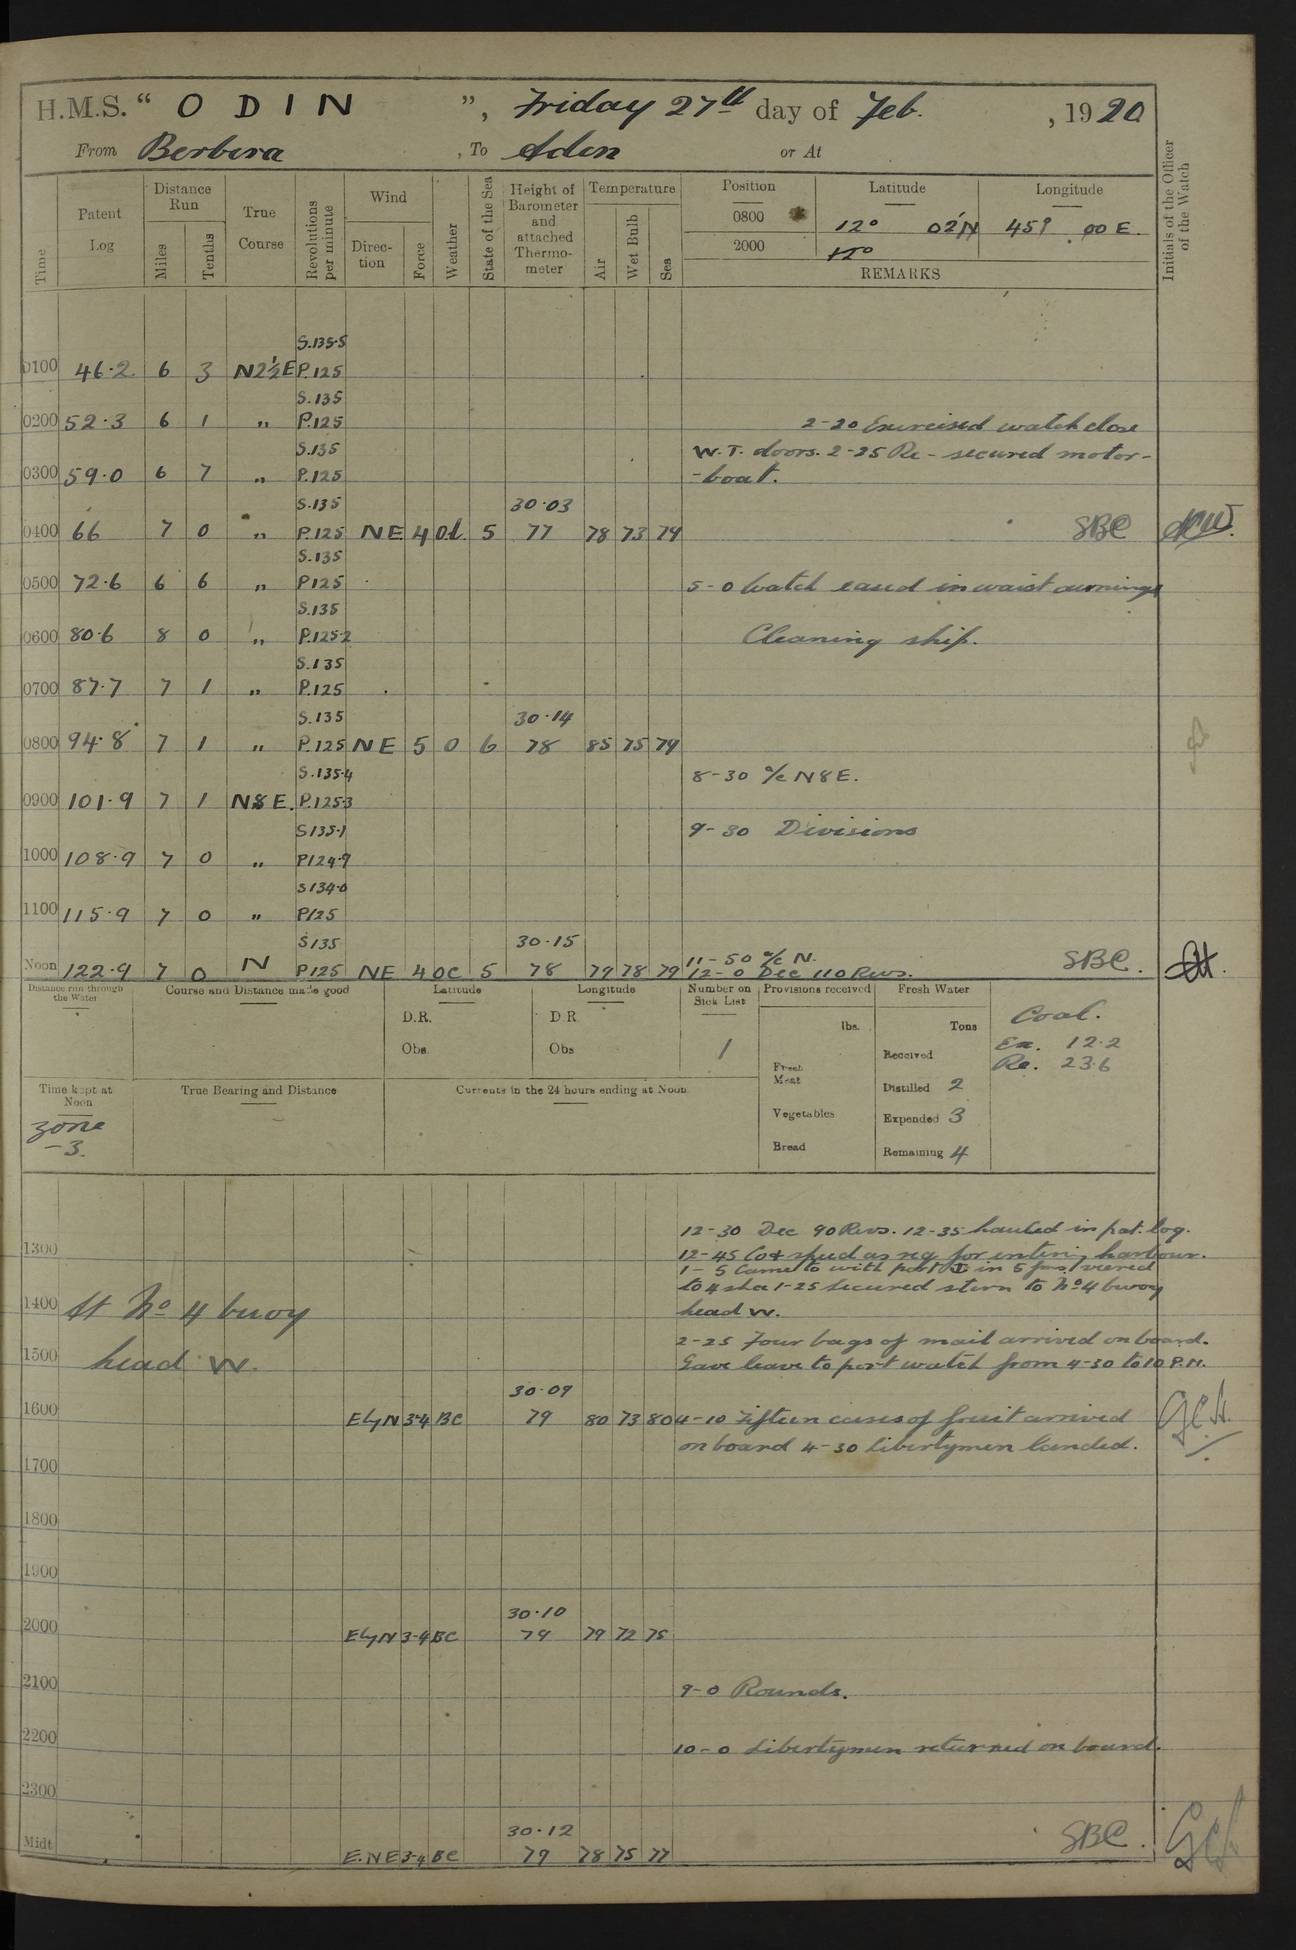 H.M.S. “ ODIN ”, Friday 27th day of Feb. , 1920
From Berbera , To Aden or At
Time
Patent Log
Distance Run
Miles
Tenths
True Course
Revolutions per minute
Wind
Direc-tion
Force
Weather
State of the Sea
Height of Barometer and attached Thermo-meter
Temperature
Air
Wet Bulb
Sea
Position Latitude Longitude
0800 12° 02'N 45° 00 E.
2000 12°
REMARKS
Initials of the Officer of the Watch
S.135.5
0100 46.2 6 3 N2½E P.125
S.135
0200 52.3 6 1 „ P.125 2-20 Exercised watch close
S.135 W.T. doors. 2-25 Re-secured motor-
0300 59.0 6 7 „ P.125 -boat.
S.135 30.03
0400 66 7 0 „ P.125 NE 4 5 77 78 73 79 SBC
S.135
0500 72.6 6 6 „ P125 5-0 Watch eased in waist awnings
S.135
0600 80.6 8 0 „ P.125.2 Cleaning ship.
S.135
0700 87.7 7 1 „ P.125
S.135 30.14
0800 94.8 7 1 „ P.125 NE 5 0 6 78 85 75 79
S.135.4 8-30 a/c N8E.
0900 101.9 7 1 N8E. P.125.3
S135.1 9-30 Divisions
1000 108.9 7 0 „ P124.9
S134.0
1100 115.9 7 0 „ P125
S135 30.15 11-50 a/c N.
Noon 122.9 7 0 N P125 NE 4 OC 5 78 79 78 79 12-0 Dec 110 Revs. SBC.
Distance run through the Water
Course and Distance made good
Latitude
D.R.
Obs.
Longitude
D R
Obs
Number on Sick List
1
Provisions received
lbs.
Fresh Meat
Vegetables
Bread
Fresh Water
Tons
Received
Distilled 2
Expended 3
Remaining 4
Coal.
Ex. 12.2
Re. 236
Time kept at Noon
zone
-3.
True Bearing and Distance
Currents in the 24 hours ending at Noon.
12-30 Dec 90 Revs. 12-35 hauled in pat. log.
1300 12-45 Co & speed as req for entering harbour.
1-5 Came to with port in 5 fms, veered
to 4 sha 1-25 Secured stern to No 4 buoy
1400 At No 4 buoy head W.
2-25 Four bags of mail arrived on board.
1500 head W. Gave leave to port watch from 4-30 to 10 P.M.
30.09
1600 EbyN 3-4 BC 79 80 73 80 4-10 Fifteen cases of fruit arrived
on board 4-30 Libertymen landed.
1700
1800
1900
30.10
2000 EbyN 3-4 BC 79 79 72 75
2100 9-0 Rounds.
2200 10-0 Libertymen returned on board.
2300
30.12
Midt E.NE 3-4 BC 79 78 75 77 SBC.